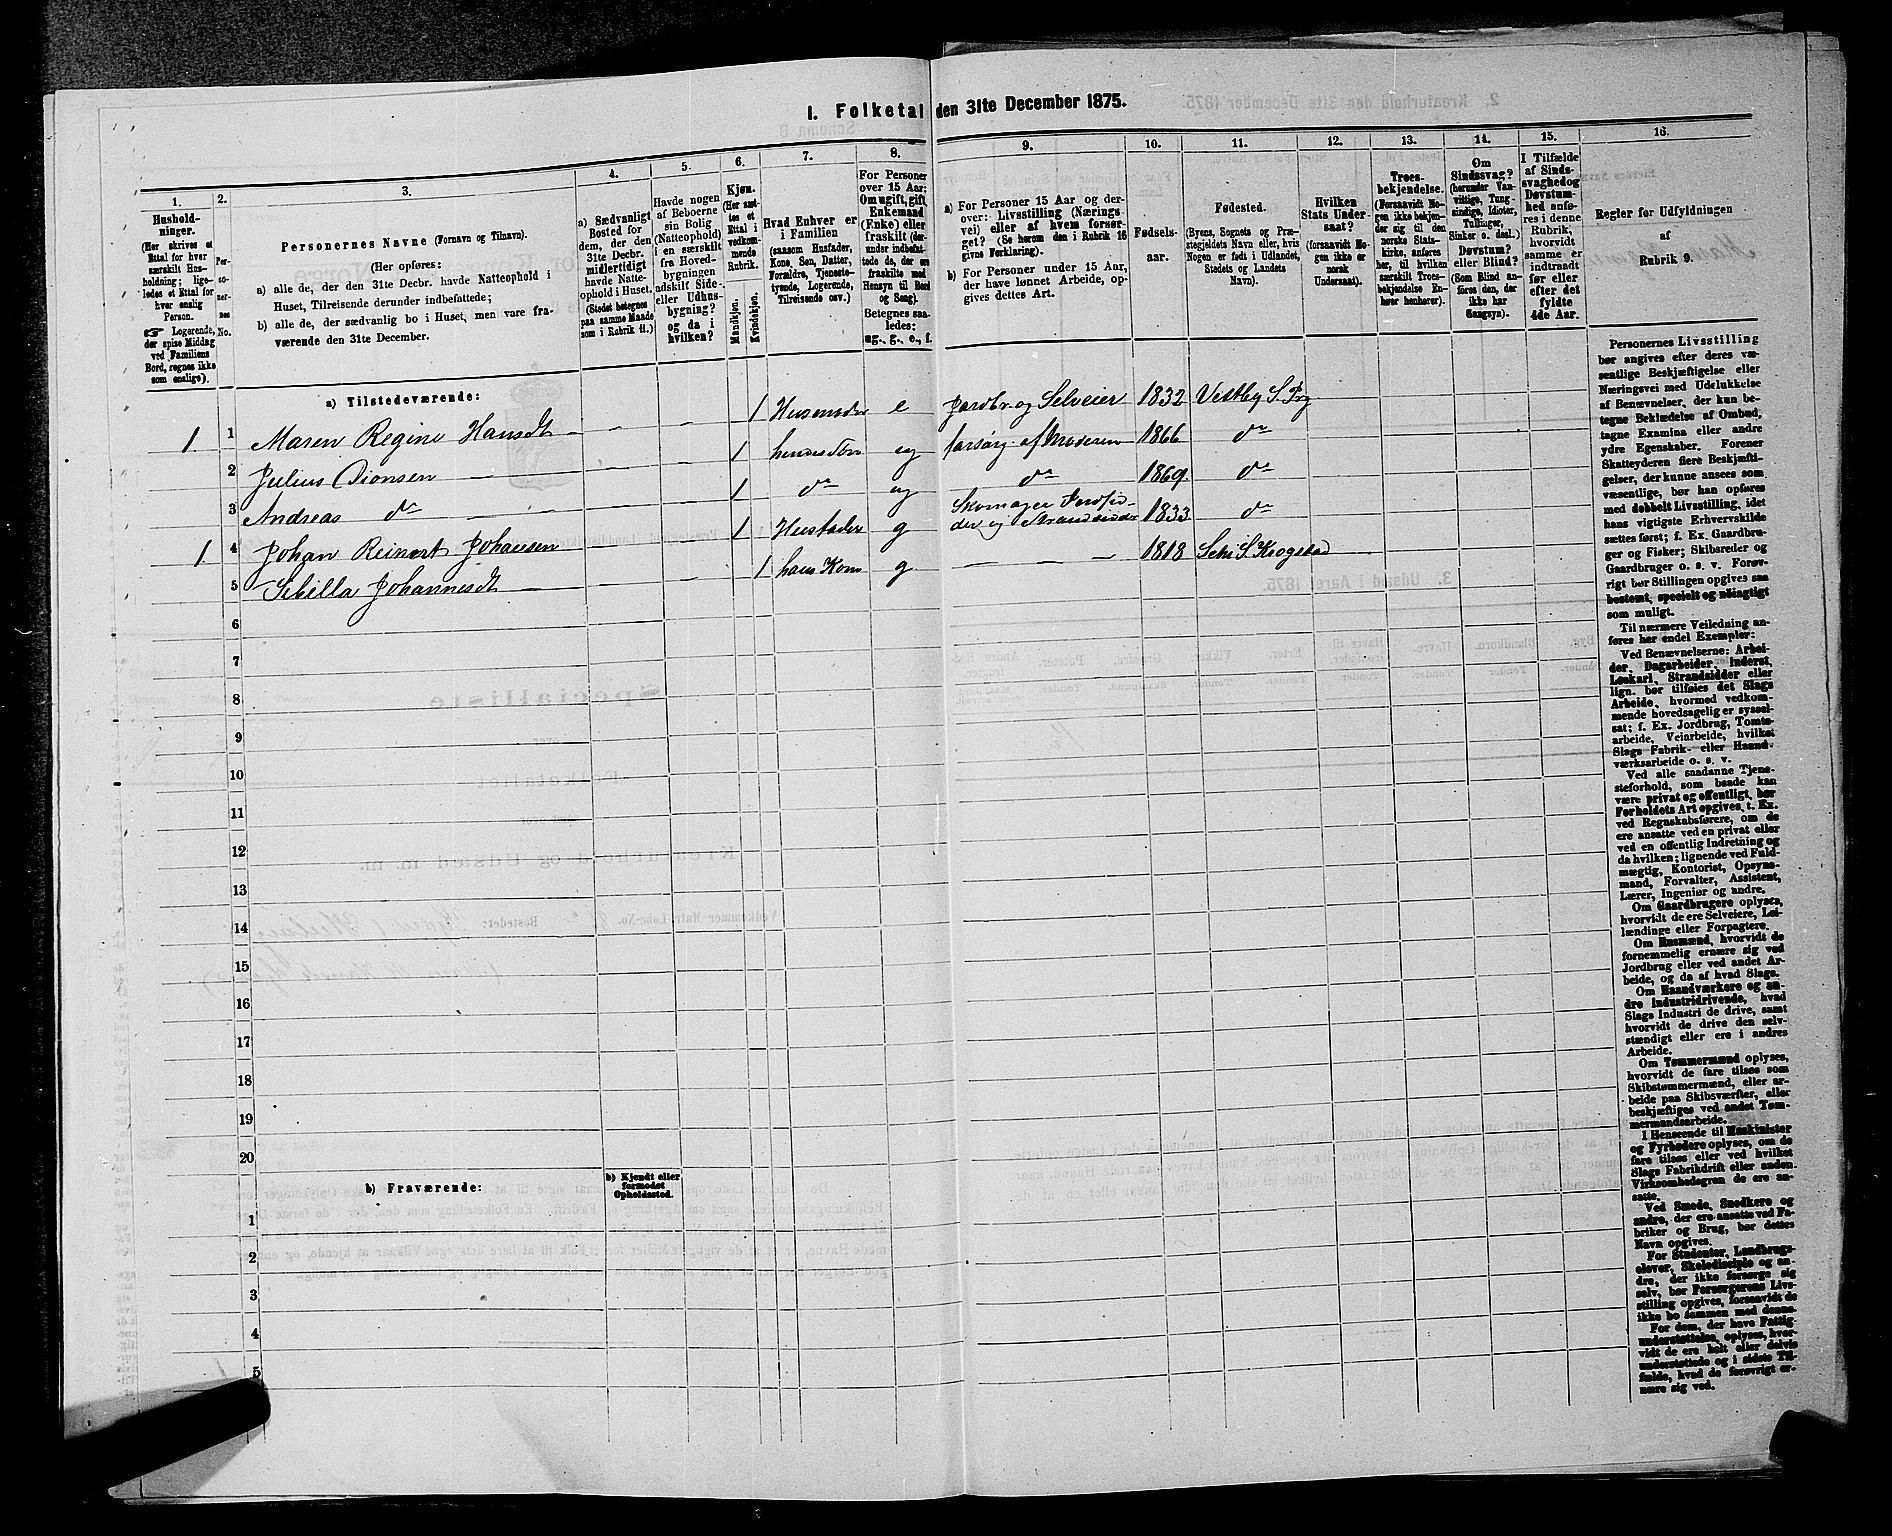 I. Folketal den 31te December 1875.
1. 2. 3. 4. 5. 6. 7. 8. 9. 10. 11. 12. 13. 14. 15. 16.
Husholdninger.
(Her skrives et
Ettal for hver
særskilt Husholdning;
ligeledes et Ettal for
hver enslig
Person.
☞ Logerende,
der spise Middag
ved Familiens
Bord, regnes ikke
som enslige).
Personernes No.
Personernes Navne (Fornavn og Tilnavn).
(Her opføres:
a) alle de, der den 31te Decbr. havde Natteophold i
Huset, Tilreisende derunder indbefattede;
b) alle de, der sædvanlig bo i Huset, men vare fraværende
den 31te December.
a) Sædvanligt
Bosted for
dem, der den
31te Decbr.
midlertidigt
havde Natteophold
i Huset.
(Stedet betegnes
paa samme Maade
som i Rubrik 11.)
Havde nogen
af Beboerne
sin Bolig
(Natteophold)
i en særskilt
fra Hovedbygningen
adskilt Side-
eller Udhusbygning?
og da i
hvilken?
Kjøn.
(Her sættes
et
Ettal i
vedkommende
Rubrik.
Mandkjøn.
Kvindekjøn.
Hvad Enhver er
i Familien
(saasom Husfader,
Kone, Søn, Datter,
Forældre, Tjenestetyende,
Logerende,
Tilreisende osv.)
For Personer
over 15 Aar:
Om ugift, gift,
Enkemand
(Enke) eller
fraskilt (derunder
indbefattede
de, der ere
fraskilte med
Hensyn til Bord
og Seng).
Betegnes saaledes:
ug., g., e., f.
a) For Personer 15 Aar og derover:
Livsstilling (Næringsvei)
eller af hvem forsørget?
(Se herom den i Rubrik 16
givne Forklaring).
b) For Personer under 15 Aar,
der have lønnet Arbeide, opgives
dettes Art.
Fødselsaar.
Fødested.
(Byens, Sognets og Præstegjeldets
Navn eller, hvis
Nogen er født i Udlandet,
Stedets og Landets
Navn).
Hvilken
Stats Undersaat?
(forsaavidt Nogen
ikke er
norsk
Undersaat).
Troesbekjendelse.
(Forsaavidt Nogen
ikke bekjender
sig til den
norske Statskirke,
anføres
her, til hvilken
særskilt Troesbekjendelse
Enhver
henhører).
Om
Sindssvag?
(herunder Vanvittige,
Tungsindige,
Idioter,
Tullinger,
Sinker o. desl.)
Døvstum?
eller Blind?
(Som Blind anføres
den, der
ikke har
Gangsyn).
I Tilfælde
af Sindssvaghed
og
Døvstumhed
anføres
i denne
Rubrik,
hvorvidt
samme er
indtraadt
før eller
efter det
fyldte
4de Aar.
Regler for Udfyldningen
af
Rubrik 9.
a) Tilstedeværende:
1 1 Maren Regine Hansdt — — — 1 Husmoder e Jordbr. og Selveier 1832 Vestby S. Prg
2 Julius Dionsen — — — 1 hendes Søn ug forsørg. af Moderen 1866 do
3 Andreas do — — — 1 do ug do 1869 do
1 4 Johan Reinert Johansen — — 1 Husfader g Skomager og Strandsidder 1833 do
5 Sibilla Johannesdt — — — 1 hans Kone g — — 1818 S. Krogstad
6
7
8
9
10
11
12
13
14
15
16
17
18
19
20
b) Fraværende:
b) Kjendt eller
formodet
Opholdssted.
1
2
3
4
5
Personernes Livsstilling
bør angives efter deres væsentlige
Beskjæftigelse eller
Næringsvei med Udelukkelse
af Benævnelser, der kun betegne
Beklædelse af Ombud,
tagne Examina eller andre
ydre Egenskaber. Forener
Skatteyderen flere Beskjæftigelser,
der kunne ansees som
væsentlige, bør han opføres
med dobbelt Livsstilling, idet
hans vigtigste Erhvervskilde
sættes først; f. Ex. Gaardbruger
og Fisker; Skibsreder og
Gaardbruger o. s. v. Forøvrigt
bør Stillingen opgives saa
bestemt, specielt og nøiagtigt
som muligt.
Til nærmere Veiledning anføres
her endel Exempler:
Ved Benævnelserne: Arbeider,
Dagarbeider, Inderst,
Løskarl, Strandsidder eller
lign. bør tilføies det Slags
Arbeide, hvormed vedkommende
hovedsagelig er sysselsat;
f. Ex. Jordbrug, Tomtearbeide,
Veiarbeide, hvilket
Slags Fabrik- eller Haandværksarbeide
o. s. v.
Ved alle saadanne Tjenesteforhold,
som baade kan
være privat og offentligt, bør
Forholdets Art opgives, t. Ex.
ved Regnskabsførere, om de
ere ansatte ved en privat eller
ved en offentlig Indretning og
da hvilken; lignende ved Fuldmægtig,
Kontorist, Opsynsmand,
Forvalter, Assistent,
Lærer, Ingeniør og andre.
Om Gaardbrugere oplyses,
hvorvidt de ere Selveiere, Leilændinge
eller Forpagtere.
Om Husmænd, hvorvidt de
fornemmelig ernære sig ved
Jordbrug eller ved andet Arbeide,
og da af hvad Slags.
Om Haandværkere og andre
Industridrivende, hvad
Slags Industri de drive, samt
hvorvidt de drive den selvstændigt
eller ere i andres
Arbeide.
Om Tømmermænd oplyses,
hvorvidt de fare tilsøs som
Skibstømmermænd, eller arbeide
paa Skibsværfter, eller
beskjæftiges ved andet Tømmermandsarbeide.
I Henseende til Maskinister
og Fyrbødere oplyses, om de
fare tilsøs eller ved hvilket
Slags Fabrikdrift eller anden
Virksomhedsgren de ere ansatte.
Ved Smede, Snedkere og
andre, der ere ansatte ved Fabriker
og Brug, bør dettes
Navn opgives.
For Studenter, Landbrugselever,
Skoledisciple og andre,
der ikke forsørge sig
selv, bør Forsørgerens Livsstilling
opgives, forsaavidt de
ikke bo sammen med denne.
For dem, der have Fattigunderstøttelse,
oplyses, hvorvidt
de ere helt eller delvis
understøttede og i sidste Tilfælde,
hvad de forøvrigt ernære
sig ved.